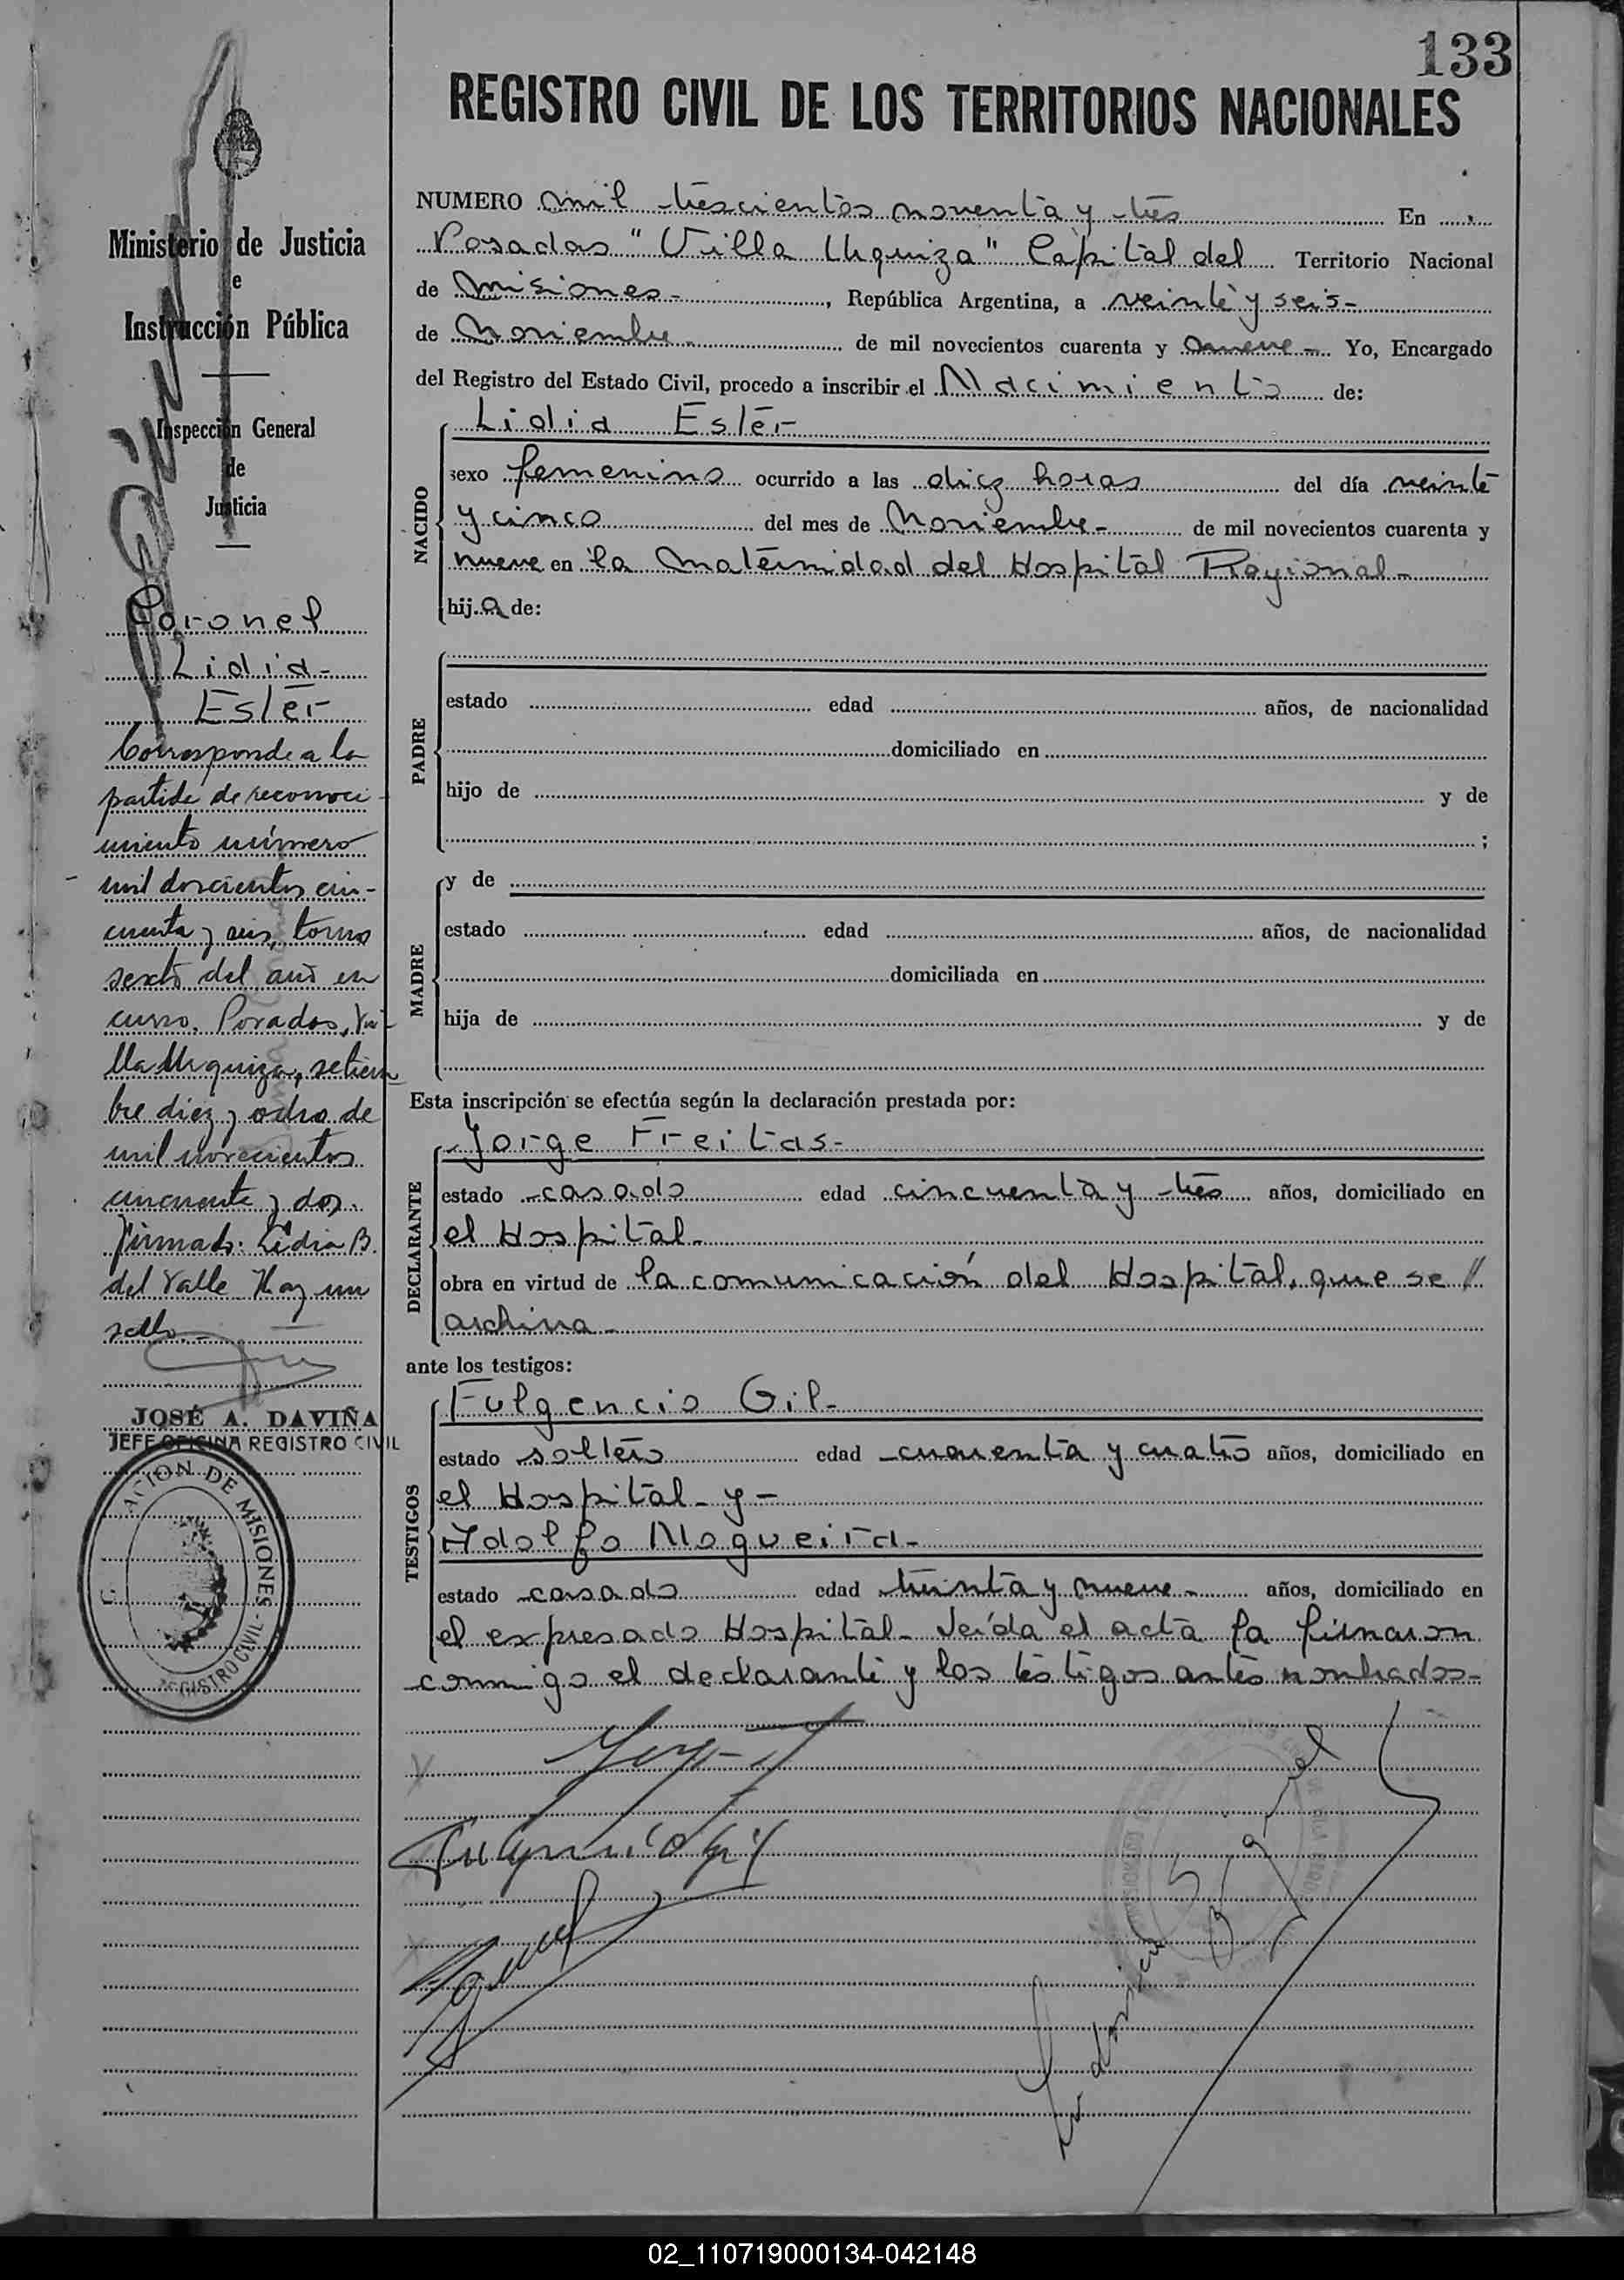 133
REGISTRO CIVIL DE LOS TERRITORIOS NACIONALES
Ministerio de Justicia
e
Instrucción Pública
Inspección General
de
Justicia
Coronel
Lidia-
Ester
Corresponde a la
partida de reconoci-
miento número
mil doscientos cin-
cuenta y seis, tomo
sexto del año en
curso. Posadas, Vi-
lla Urquiza, setiem
bre diez y ocho de
mil novecientos
cincuenta y dos.
Firmado: Lidia B.
del Valle. Hay un
sello.-
JOSÉ A. DAVIÑA
JEFE OFICINA REGISTRO CIVIL
ACION DE MISIONES - REGISTRO CIVIL -
NUMERO mil trescientos noventa y tres En
Posadas "Villa Urquiza" Capital del Territorio Nacional
de Misiones-, República Argentina, a veinte y seis-
de Noviembre- de mil novecientos cuarenta y nueve- Yo, Encargado
del Registro del Estado Civil, procedo a inscribir el Nacimiento de:
NACIDO
Lidia Ester
sexo femenino ocurrido a las diez horas del día veinte
y cinco del mes de Noviembre- de mil novecientos cuarenta y
nueve en la Maternidad del Hospital Regional-
hij.a de:
PADRE
estado edad años, de nacionalidad
domiciliado en
hijo de y de
;
MADRE
y de
estado edad años, de nacionalidad
domiciliada en
hija de y de
Esta inscripción se efectúa según la declaración prestada por:
DECLARANTE
Jorge Freitas-
estado casado edad cincuenta y tres años, domiciliado en
el Hospital-
obra en virtud de la comunicación del Hospital, que se //
archiva-
ante los testigos:
TESTIGOS
Fulgencio Gil-
estado soltero edad cuarenta y cuatro años, domiciliado en
el Hospital- y-
Adolfo Nogueira-
estado casado edad treinta y nueve- años, domiciliado en
el expresado Hospital- Leída el acta la firmaron
conmigo el declarante y los testigos antes nombrados-
02_110719000134-042148